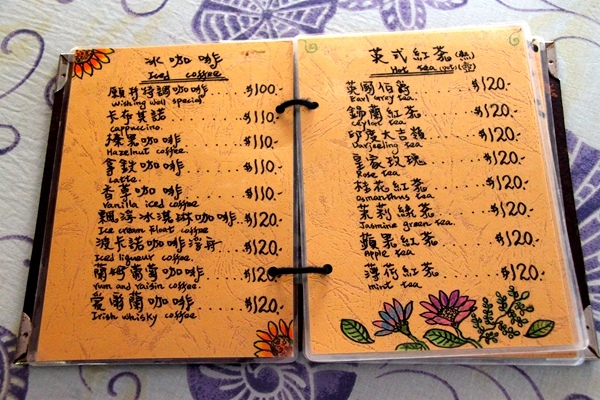 冰咖啡
Iced coffee
願井特調咖啡 $100.-
Wishing well special
卡布其諾 $110.-
Cappuccino
榛果咖啡 $110.-
Hazelnut coffee
拿鐵咖啡 $110.-
Latte
香草咖啡 $110.-
Vanilla iced coffee
飄浮冰淇淋咖啡 $120.-
Ice cream float coffee
波卡諾咖啡漂舟 $120.-
Iced liqueur coffee
蘭姆葡萄咖啡 $120
rum and raisin coffee
愛爾蘭咖啡 $120.-
Irish whisky coffee
英式紅茶(熱)
Hot tea
英國伯爵 $120.-
Earl grey tea
錫蘭紅茶 $120.-
Ceylon tea
印度大吉嶺 $120.-
Darjeeling tea
皇家玫瑰 $120.-
Rose tea
桂花紅茶 $120.-
Osmanthus tea
茉莉綠茶 $120.-
Jasmine green tea
蘋果紅茶 $120.-
Apple tea
薄荷紅茶 $120.-
mint tea